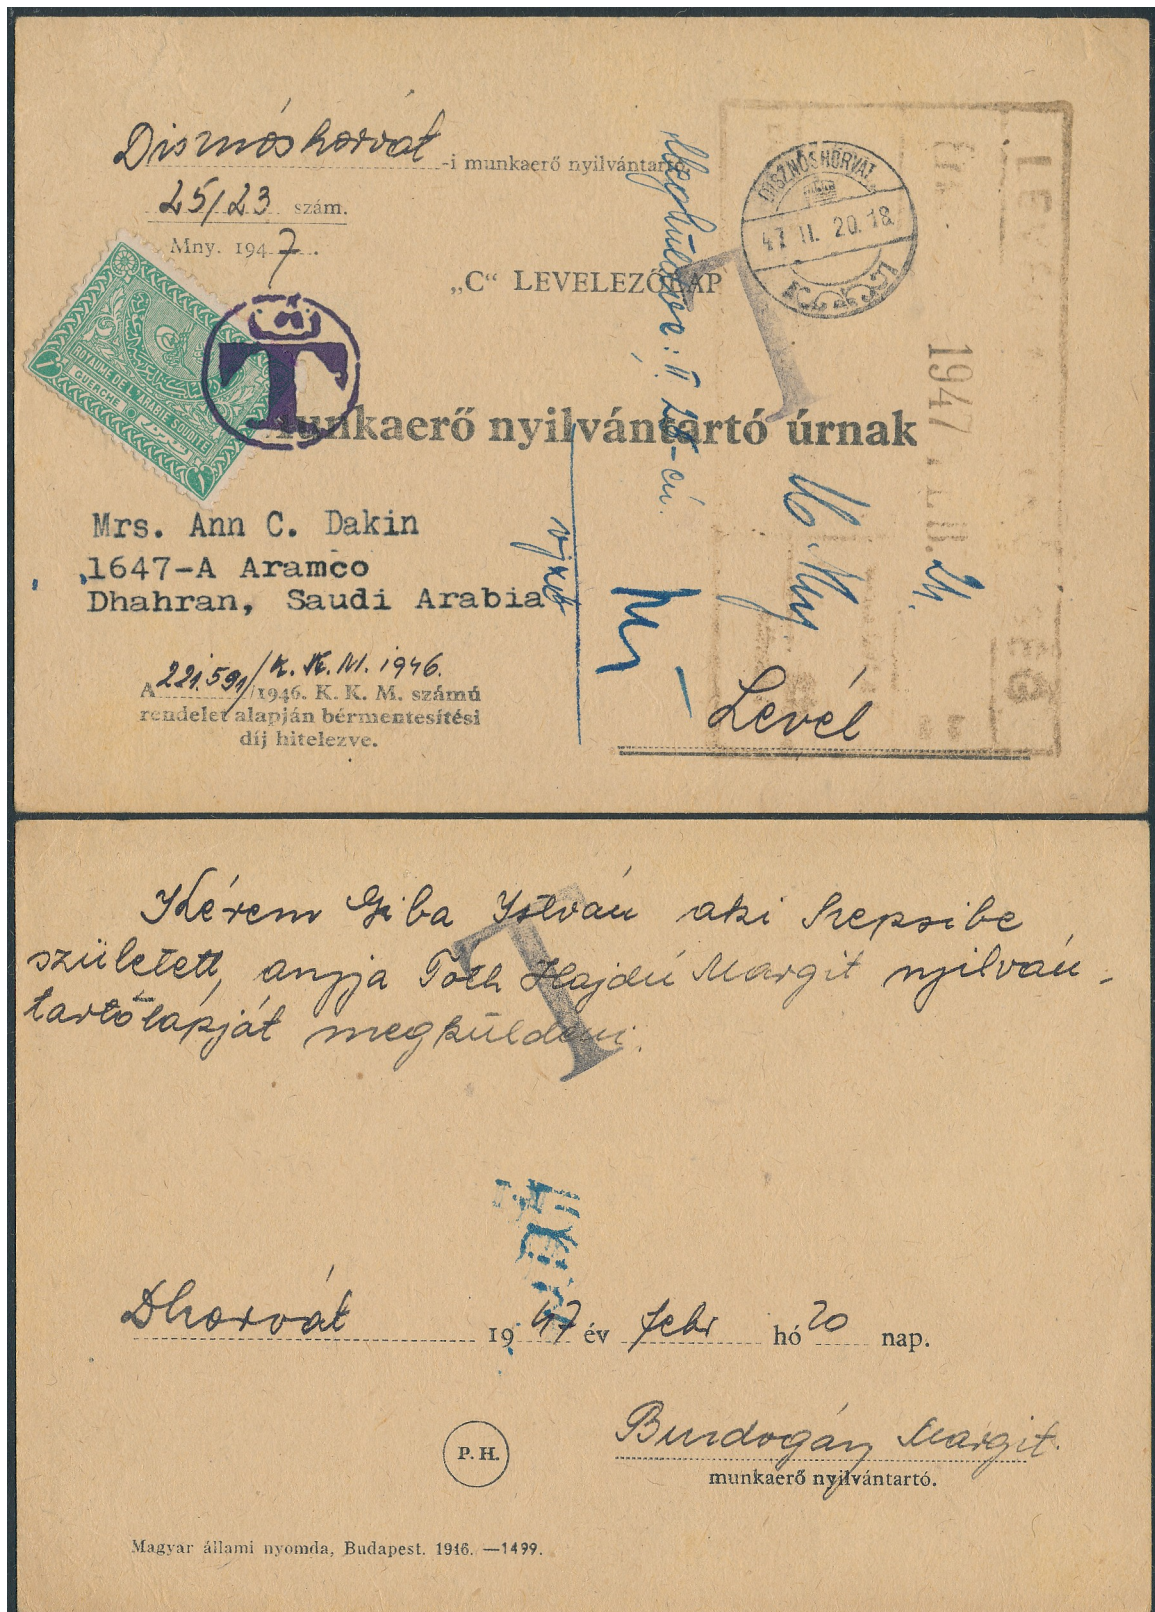 Disznóshorvát -i munkaerő nyilvántartó
25/23 szám.
Mny. 1947.
„C“ LEVELEZŐLAP
DISZNÓSHORVÁT
47 II. 20. 18
T
T
ROYAUME DE L'ARABIE SOUDITE
GUERCHE 1
Munkaerő nyilvántartó úrnak
Megküldve: II. 25-én.
1947
24.
Mrs. Ann C. Dakin
1647-A Aramco
Dhahran, Saudi Arabia
A 221.591/K. K. M. 1946.
/1946. K. K. M. számú
rendelet alapján bérmentesítési
díj hitelezve.
Levél
Kérem Giba István aki Szepsibe
született, anyja Tóth Hajdú Margit nyilván-
tartólapját megküldeni.
T
Dhorvát 1947 év febr hó 20 nap.
P. H.
Burdogány Margit
munkaerő nyilvántartó.
Magyar állami nyomda, Budapest. 1946. —1499.